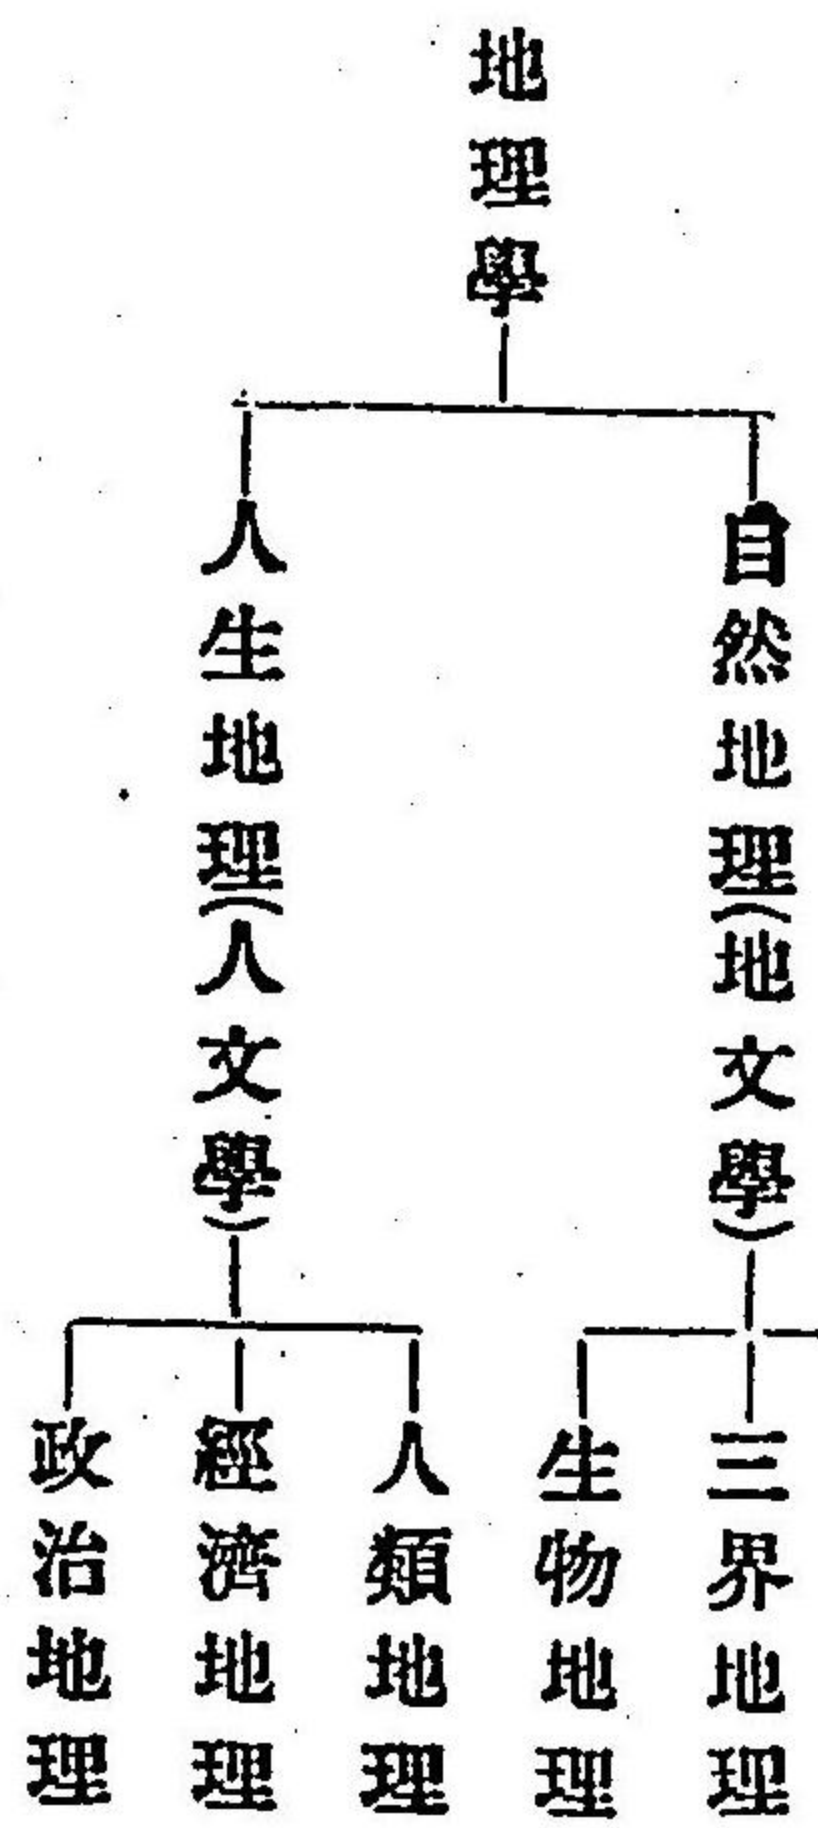 地理學
自然地理(地文學)
人生地理(人文學)
三界地理
生物地理
人類地理
經濟地理
政治地理